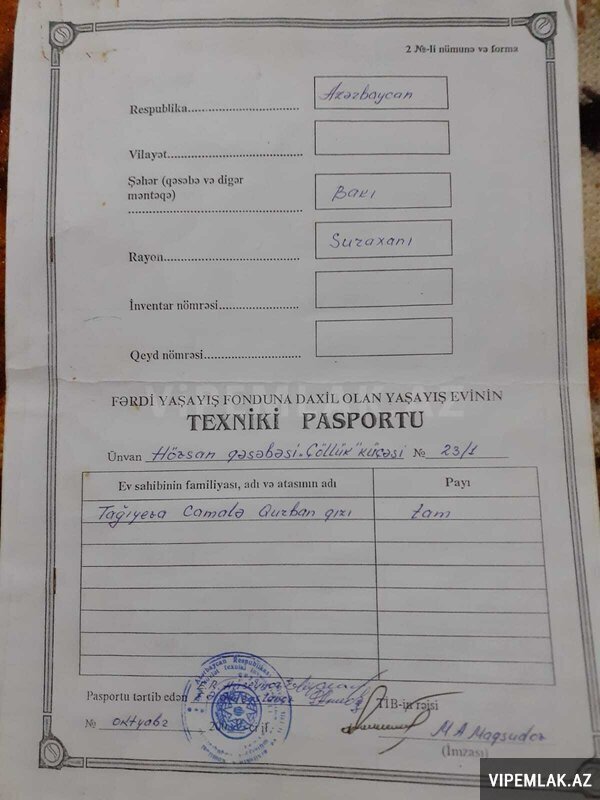 2 №-li nümunə və forma
Respublika.............................. Azərbaycan
Vilayət....................................
Şəhər (qəsəbə və digər
məntəqə)
.............................................. Bakı
Rayon..................................... Suraxanı
İnventar nömrəsi.....................
Qeyd nömrəsi..........................
VIPEMLAK.AZ
FƏRDİ YAŞAYIŞ FONDUNA DAXİL OLAN YAŞAYIŞ EVİNİN
TEXNİKİ PASPORTU
Ünvan Hövsan qəsəbəsi. "Çöllük" küçəsi № 23/1
Ev sahibinin familiyası, adı və atasının adı Payı
Tağıyeva Camalə Qurban qızı tam
Pasportu tərtib edən
TİB-in rəisi
№ oktyabr
M A Maqsudov
(İmzası)
VIPEMLAK.AZ